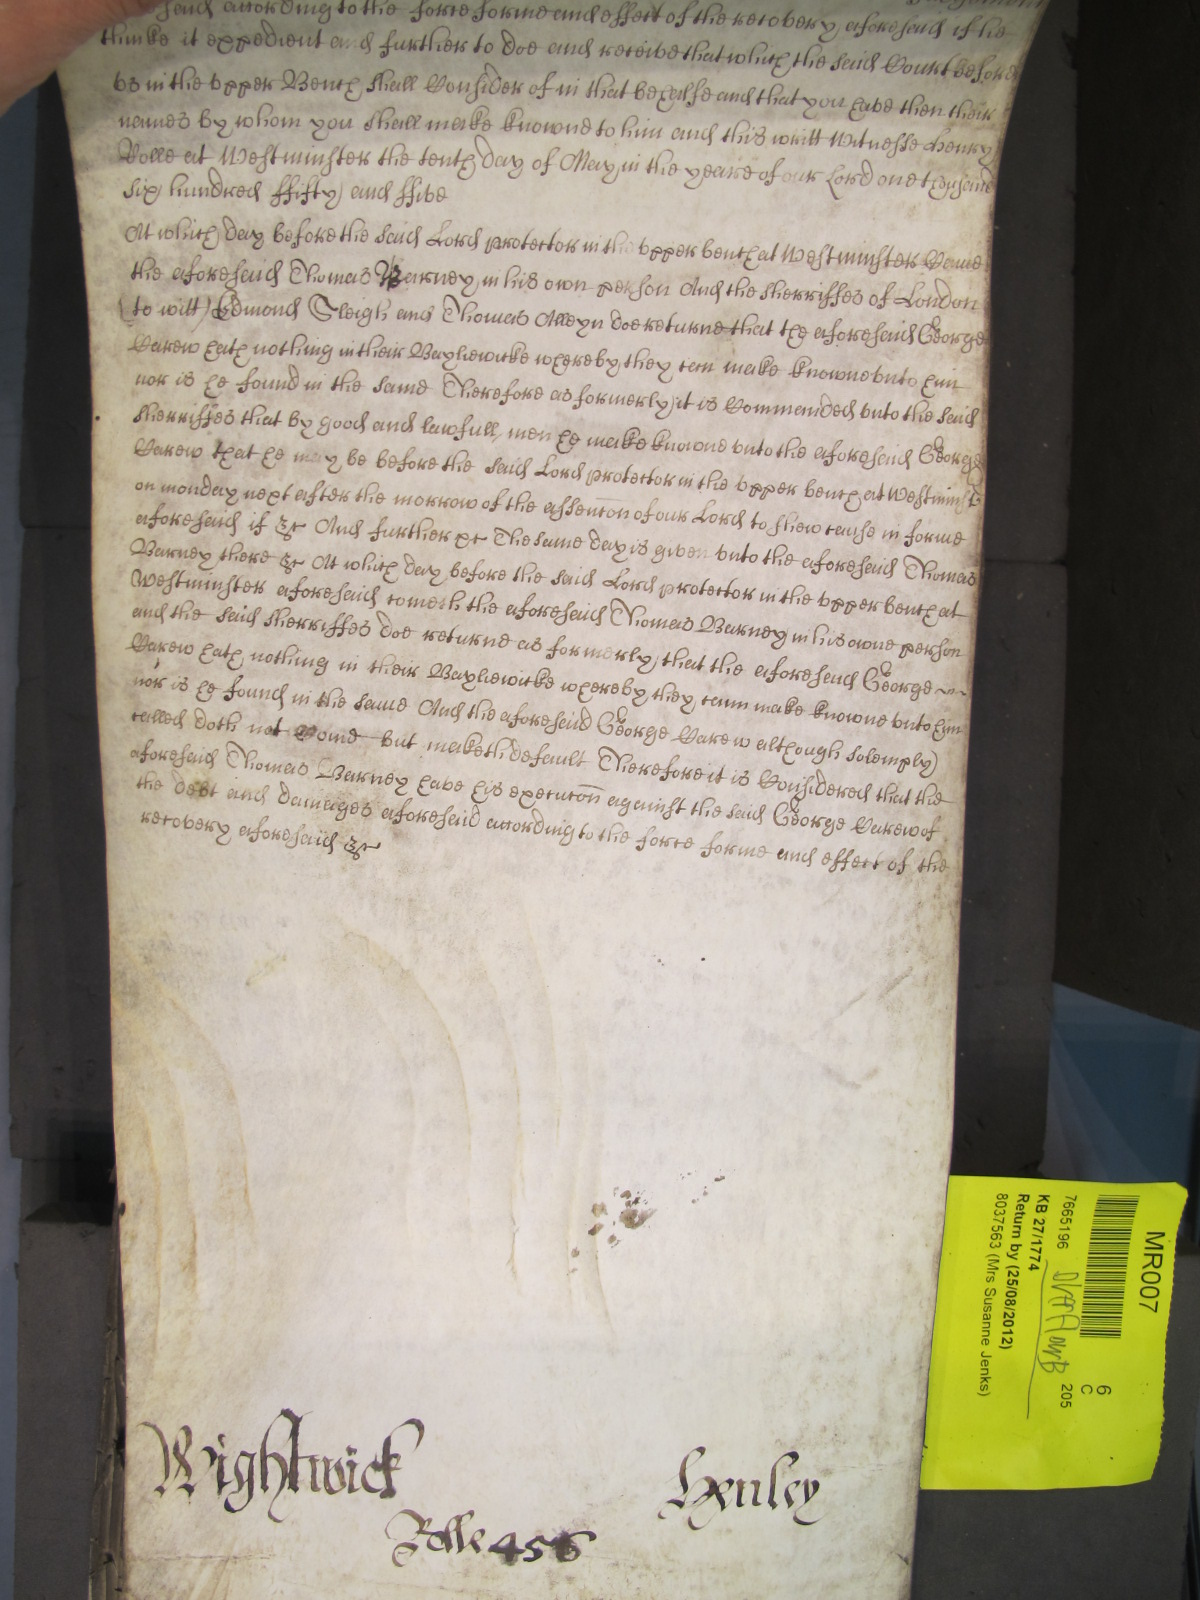 Judgement
said according to the force forme and effect of the recovery aforesaid if he
thinke it expedient and further to doe and receive that which the said Court before
us in the upper Bench shall Consider of in that behalfe and that you have then their
names by whom you shall make knowne to him and this writt Witnesse Henry
Rolle at Westminster the tenth day of May in the yeare of our Lord one thousand
six hundred ffifty and ffive
At which day before the said Lord protector in the upper bench at Westminster Came
the aforesaid Thomas Barney in his own person And the sherriffes of London
(to witt) Edmond Sleigh and Thomas Alleyn doe returne that the aforesaid George
Carew hath nothing in their Bayliewicke whereby they can make knowne unto him
nor is he found in the same Therefore as formerly it is Commanded unto the said
sherriffes that by good and lawfull men he make knowne unto the aforesaid George
Carew that he may be before the said Lord protector in the upper bench at Westminster
on monday next after the morrow of the assencon of our Lord to shew cause in forme
aforesaid if &c And further &c The same day is given unto the aforesaid Thomas
Barney there &c At which day before the said Lord protector in the upper bench at
Westminster aforesaid cometh the aforesaid Thomas Barney in his owne person
and the said sherriffes doe returne as formerly that the aforesaid George
Carew hath nothing in their Bayliewicke whereby they cann make knowne unto him
nor is he found in the same And the aforesaid George Carew although solemply
called doth not Come but maketh default Therefore it is Considered that the
aforesaid Thomas Barney have his execucon against the said George Carew of
the debt and damages aforesaid according to the force forme and effect of the
recovery aforesaid &c
Wightwick Henley
Rolle 456
MR007
6
C
205
7665196
KB 27/1774
Return by (25/08/2012)
8037563 (Mrs Susanne Jenks)